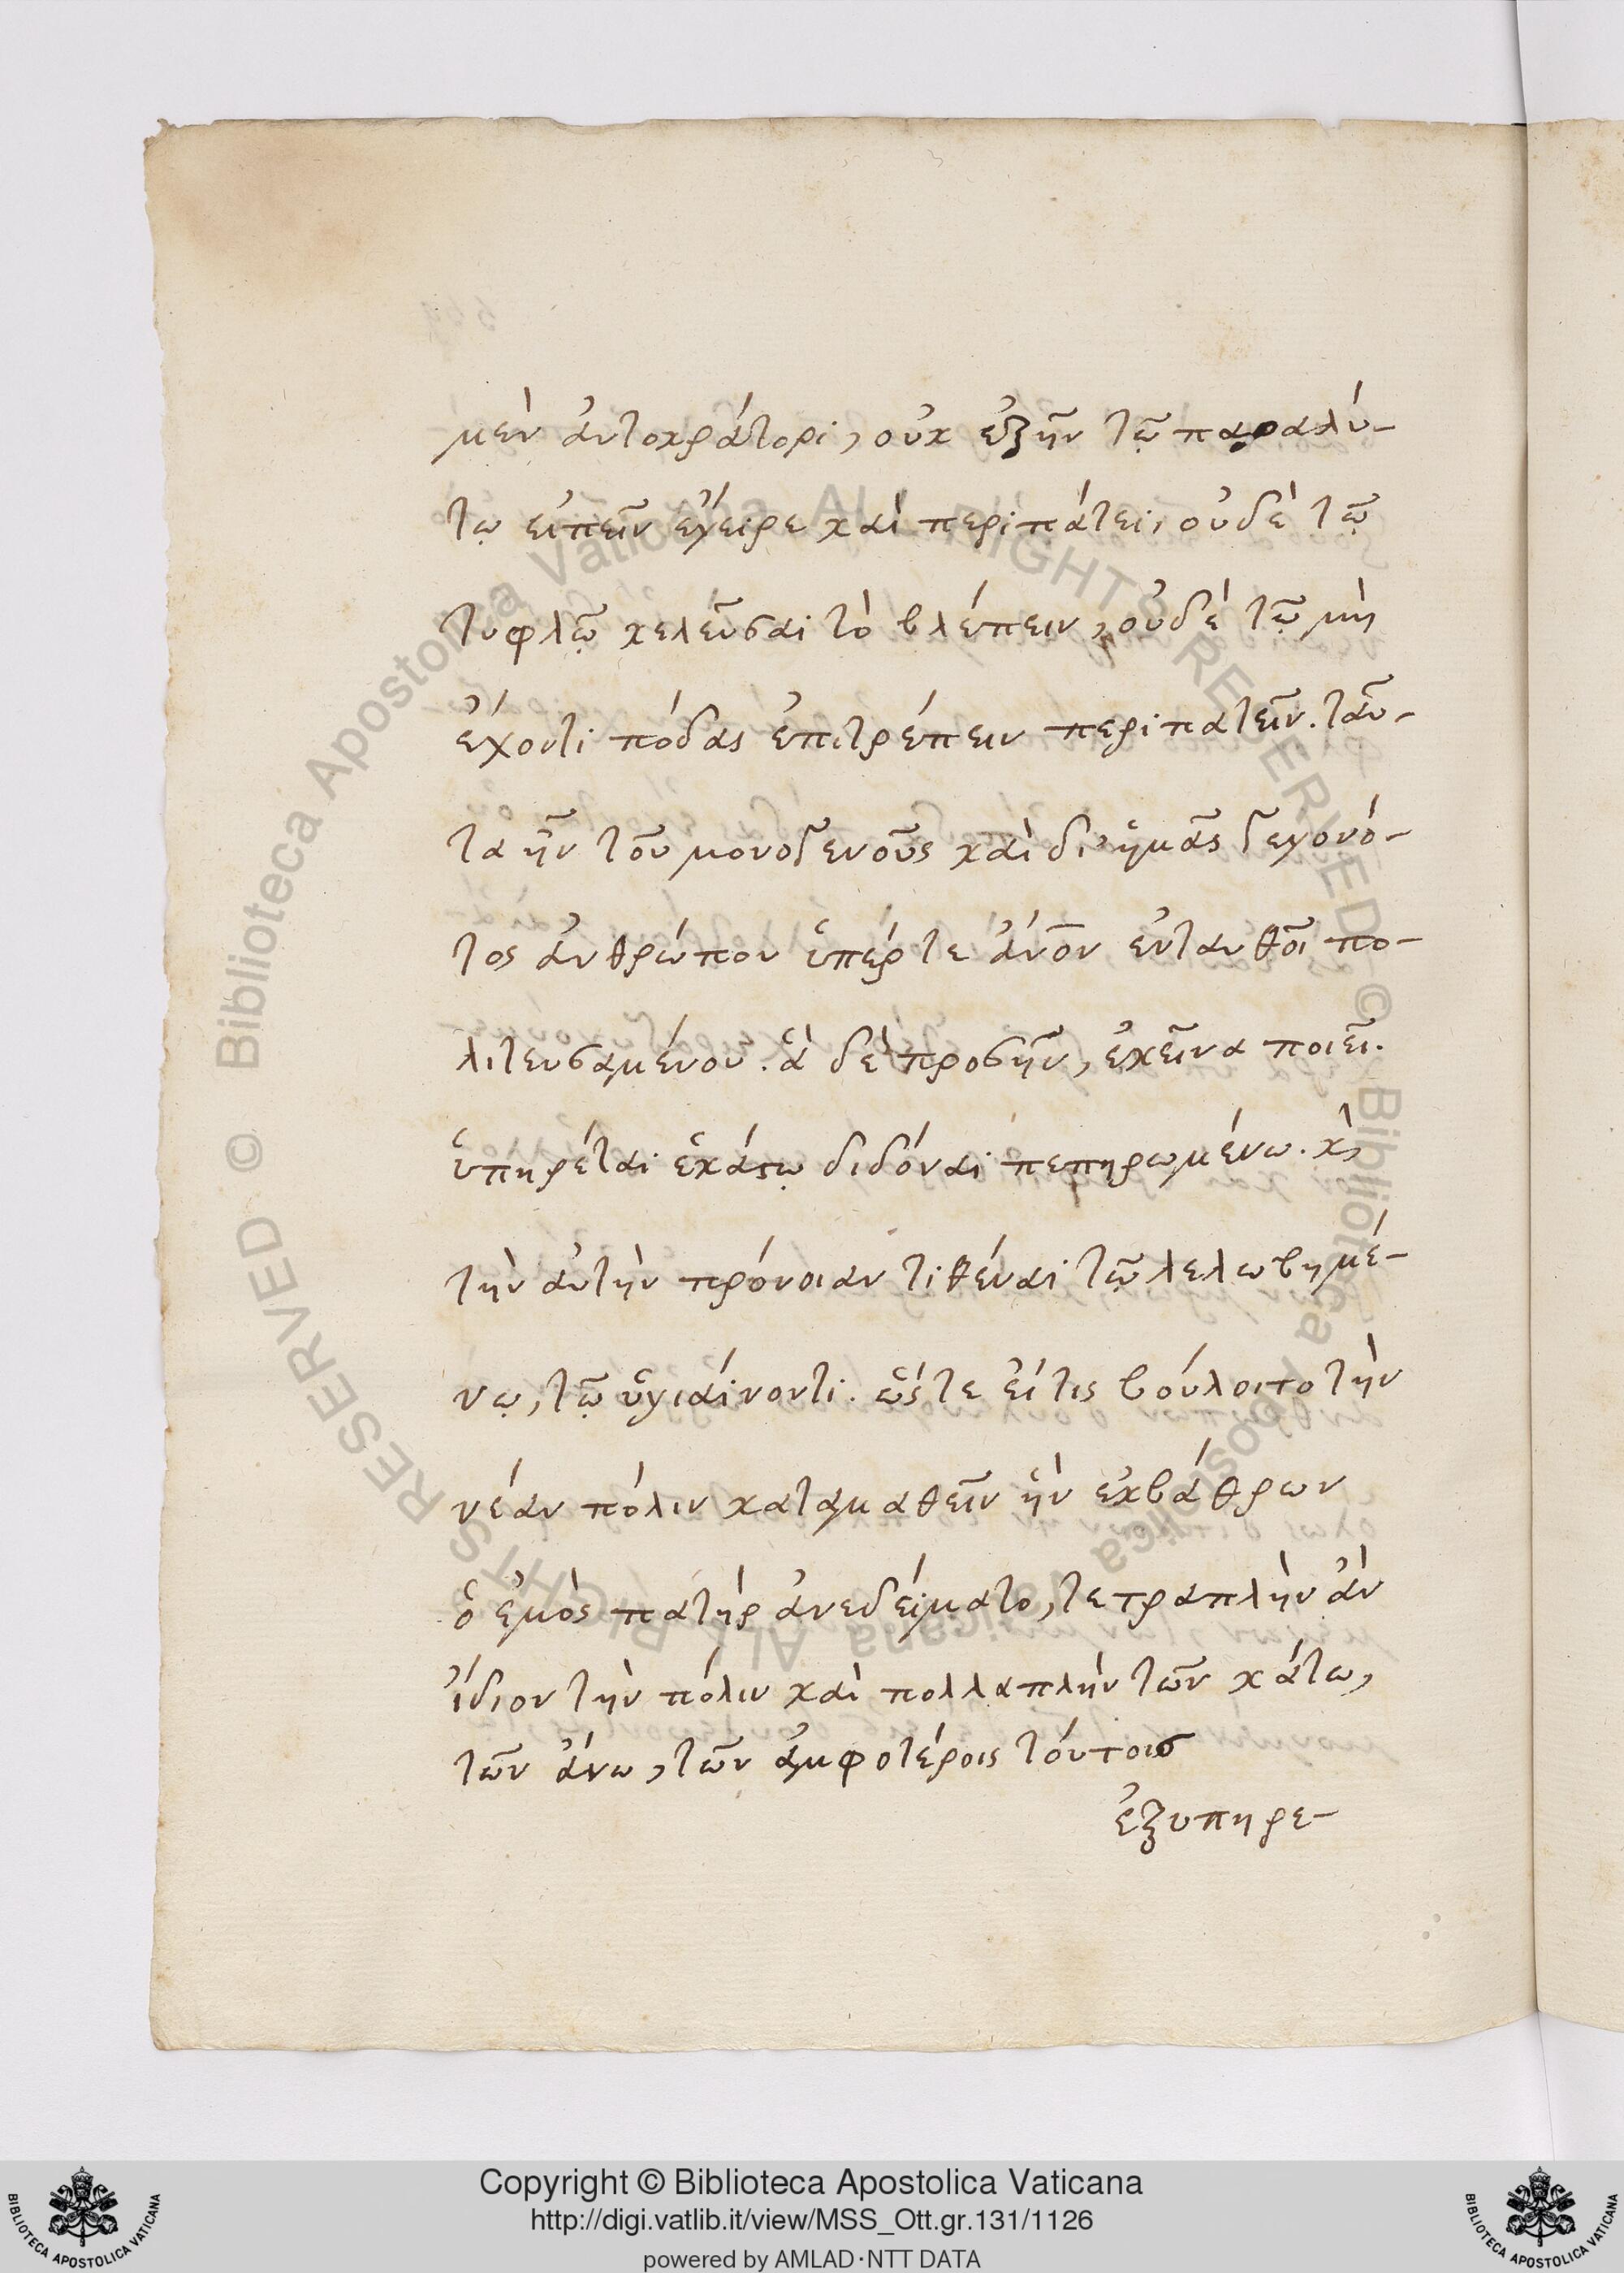 μὲν ἀυτοκράτορι, οὐκ ἐξῆν τῷ παραλύ-
τῳ εἰπεῖν ἔγειρε καὶ περιπάτει, οὐδὲ τῷ
τυφλῷ κελεῦσαι τὸ βλέπειν, οὐδὲ τῷ μὴ
ἔχοντι πόδας ἐπιτρέπειν περιπατεῖν. ταῦ-
τα ἦν τοῦ μονογενοῦς καὶ δι' ἡμᾶς γεγονό-
τος ἀνθρώπου ὑπέρ τε ἄνον ἐνταυθοῖ πο-
λιτευσαμένου. ἃ δὲ προσῆν, ἐκεῖνα ποιεῖ.
ὑπηρέται ἑκάστῳ διδόναι πεπηρωμένω. κὶ
τὴν ἀυτὴν πρόνοιαν τιθέναι τῷ λελωβημέ-
νῳ, τῷ ὑγιαίνοντι. ὥστε ἔιτις βούλοιτο τὴν
νέαν πόλιν καταμαθεῖν ἣν ἐκβάθρων
ὁ ἐμὸς πατὴρ ἀνεδείματο, τετραπλὴν ἂν
ἴδιον τὴν πόλιν καὶ πολλαπλὴν τῶν κάτω,
τῶν ἄνω, τῶν ἀμφοτέροις τούτοις
ἐξυπηρε-
Copyright © Biblioteca Apostolica Vaticana
http://digi.vatlib.it/view/MSS_Ott.gr.131/1126
powered by AMLAD·NTT DATA
BIBLIOTECA APOSTOLICA VATICANA
BIBLIOTECA APOSTOLICA VATICANA
© Biblioteca Apostolica Vaticana ALL RIGHTS RESERVED © Biblioteca Apostolica Vaticana ALL RIGHTS RESERVED